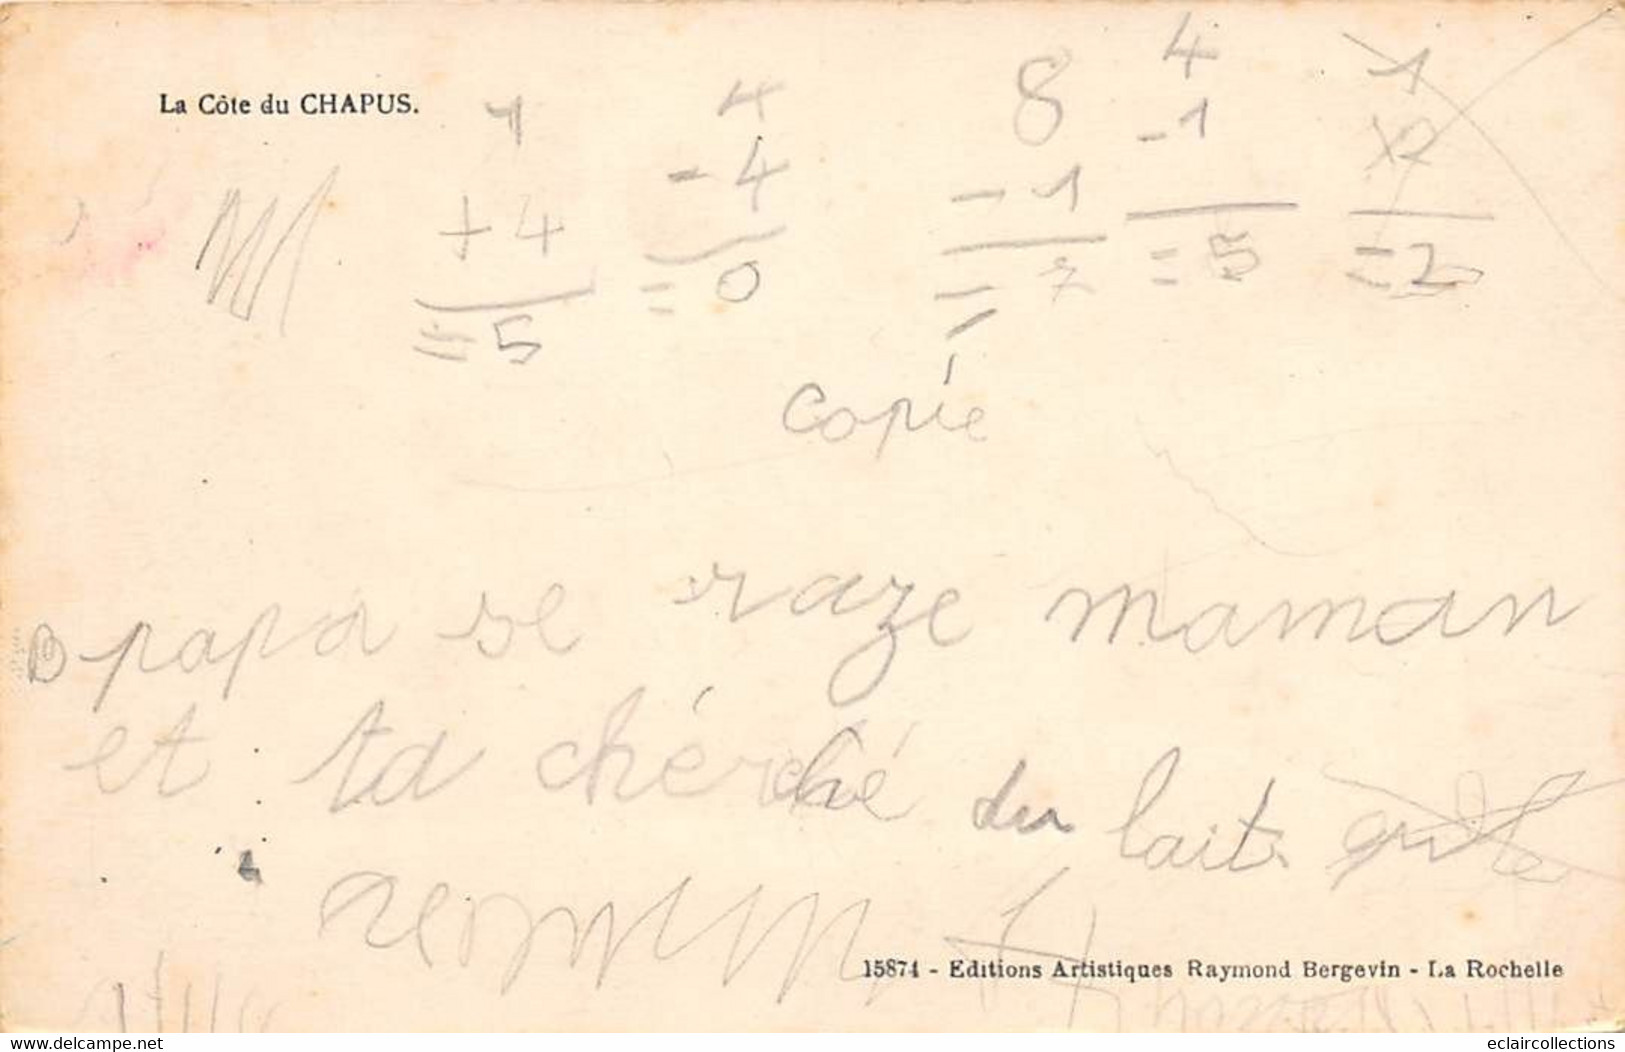 La Côte du CHAPUS.
1
+ 4
= 5
4
- 4
= 0
8
- 1
= 7
4
- 1
= 5
1
x2
= 2
copie
papa se raze maman
et ta chérché du lait
15874 - Editions Artistiques Raymond Bergevin - La Rochelle
www.delcampe.net
eclaircollections